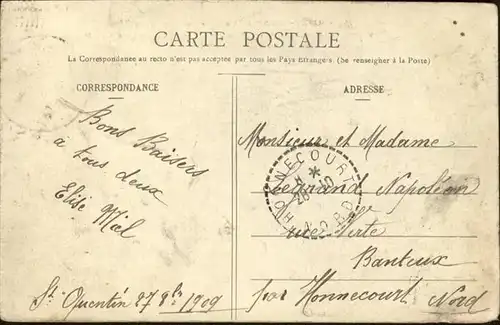 CARTE POSTALE
La Correspondance au recto n'est pas acceptée par tous les Pays Etrangers. (Se renseigner à la Poste)
CORRESPONDANCE
ADRESSE
Bons Baisers
à tous deux
Elise Miel
St Quentin 27 8bre 1909
Monsieur et Madame
Legrand Napoléon
rue Verte
Banteux
par Honnecourt Nord
HONNECOURT
28 -10
NORD